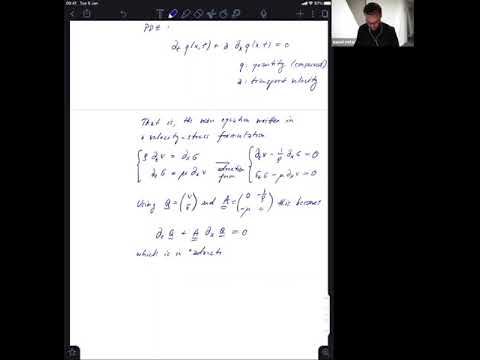 09:41 Tue 5 Jan
PDE :
∂ₜ q(x,t) + a ∂ₓ q(x,t) = 0
q : quantity (conserved)
a : transport velocity
That is, the wave equation written in
a velocity-stress formulation
{ ρ ∂ₜ v = ∂ₓ σ
∂ₜ σ = μ ∂ₓ v
advection form
{ ∂ₜ v − 1/ρ ∂ₓ σ = 0
∂ₜ σ − μ ∂ₓ v = 0
Using Q = (v σ) and A = (0 −1/ρ −μ 0) this becomes
∂ₜ Q + A ∂ₓ Q = 0
which is in "advecti